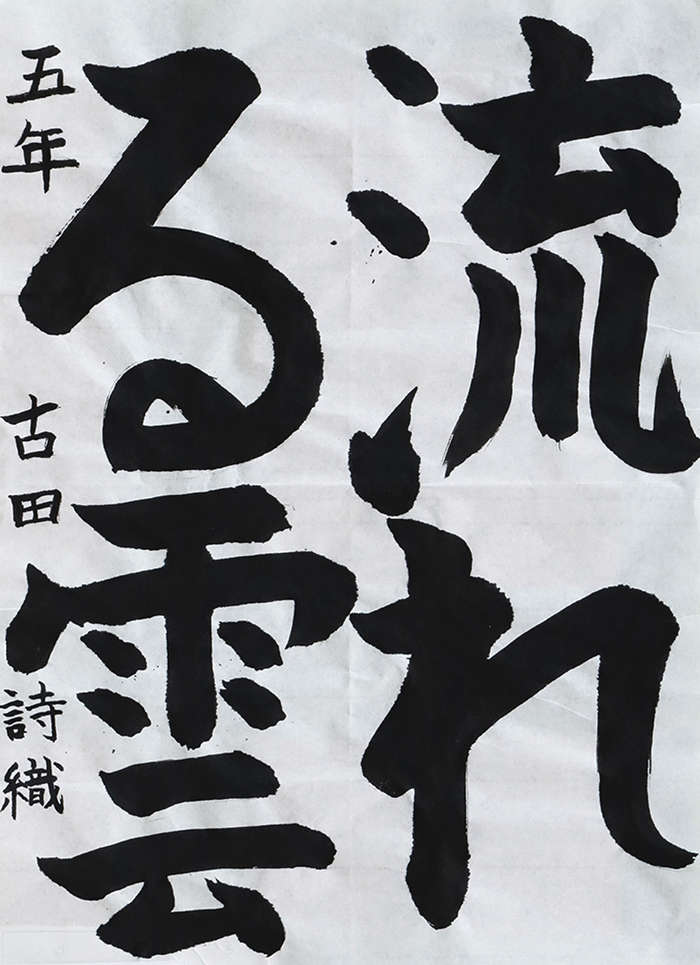 流れ
る雲
五年 古田 詩織